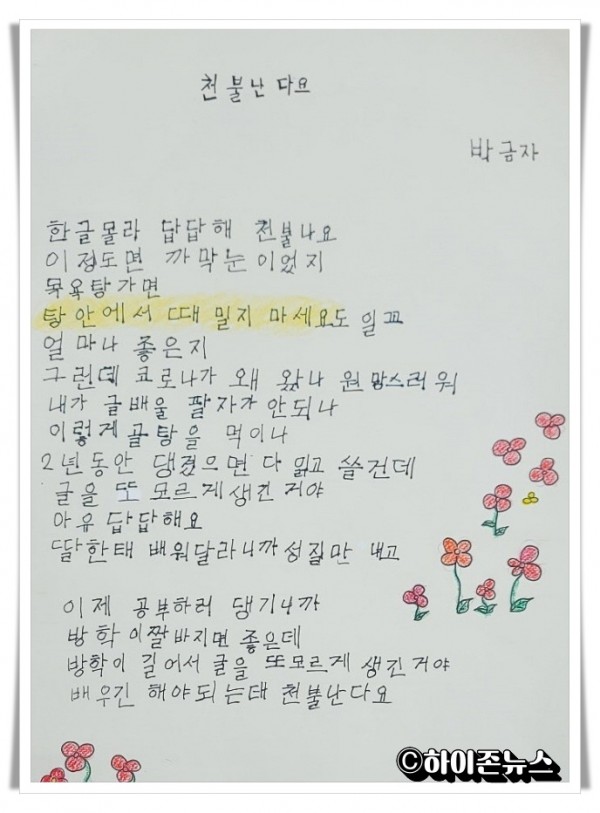 천불난다요
박금자
한글몰라 답답해 천불나요
이정도면 까막눈이었지
목욕탕가면
탕안에서 때 밀지 마세요도 일꼬
얼마나 좋은지
그런데 코로나가 왜 왔나 원망스러워
내가 글배울 팔자가 안되나
이렇게 골탕을 먹이나
2년동안 댕겼으면 다 읽고 쓸건데
글을 또 모르게생긴거야
아유 답답해요
딸한태 배워달라니까성질만 내고
이제 공부하러 댕기니까
방학이짤바지면 좋은데
방학이 길어서 글을 또모르게 생긴거야
배우긴 해야되는대 천불난다요
©하이존뉴스